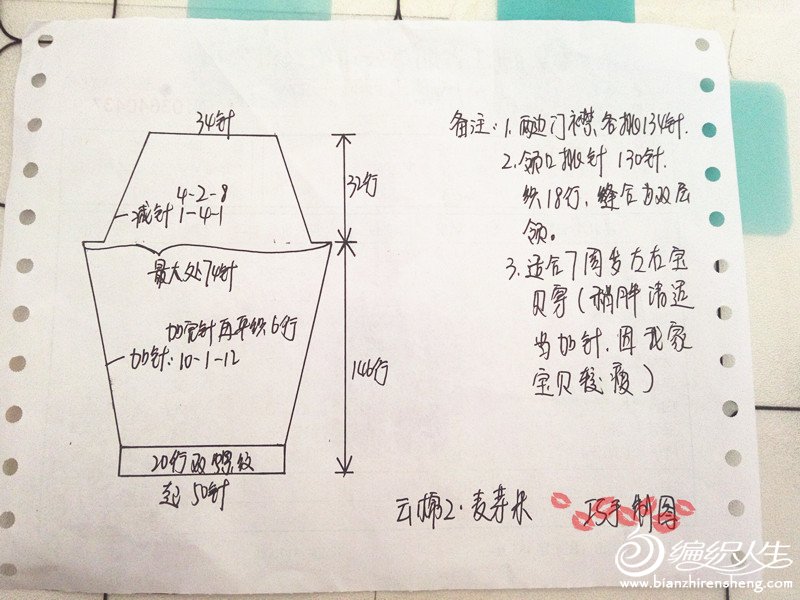 34针
32行
4-2-8
减针 1-4-1
最大处74针
加完针再平织6行
加针: 10-1-12
146行
20行双螺纹
起50针
备注: 1. 两边门襟各挑134针.
2. 领口挑针130针.
织18行, 缝合为双层
领。
3. 适合7周岁左右宝
贝穿(稍胖请适
当加针, 因我家
宝贝较瘦)
云棉2·麦芽米
巧手制图
编织人生
www.bianzhirensheng.com